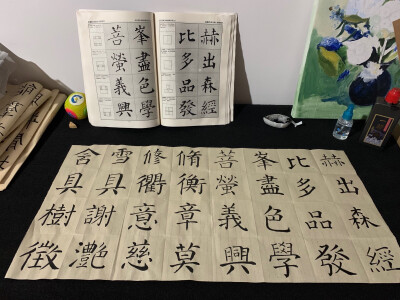 赫出森經
比多品發
峯盡色學
菩螢義興
赫出森經
比多品發
峯盡色學
菩螢義興
脩衡章莫
修衢意慈
雪具謝灧
舍具樹徵